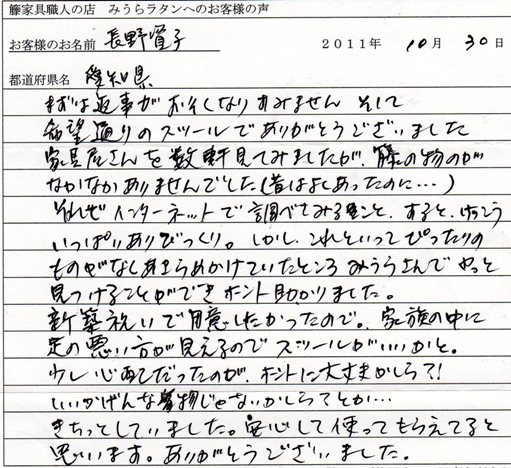 籐家具職人の店 みうらラタンへのお客様の声
お客様のお名前 長野寛子 2011年 10月 30日
都道府県名 愛知県
まずは返事がおそくなりすみません そして
希望通りのスツールでありがとうございました
家具屋さんを数軒見てみましたが、籐の物のが
なかなかありませんでした(昔はよくあったのに…)
それでインターネットで調べてみること、すると、けっこう
いっぱいありびっくり。しかし、これといってぴったりの
ものがなしあきらめかけていたところ みうらさんで やっと
見つけることができ ホント助かりました。
新築祝いで用意したかったので。家族の中に
足の悪い方が見えるので スツールがいいかと。
少し心配だったのが、ホントに大丈夫かしら?!
いいかげんな物じゃないかしら?とか…
きちっとしていました。安心して使ってもらえてると
思います。ありがとうございました。